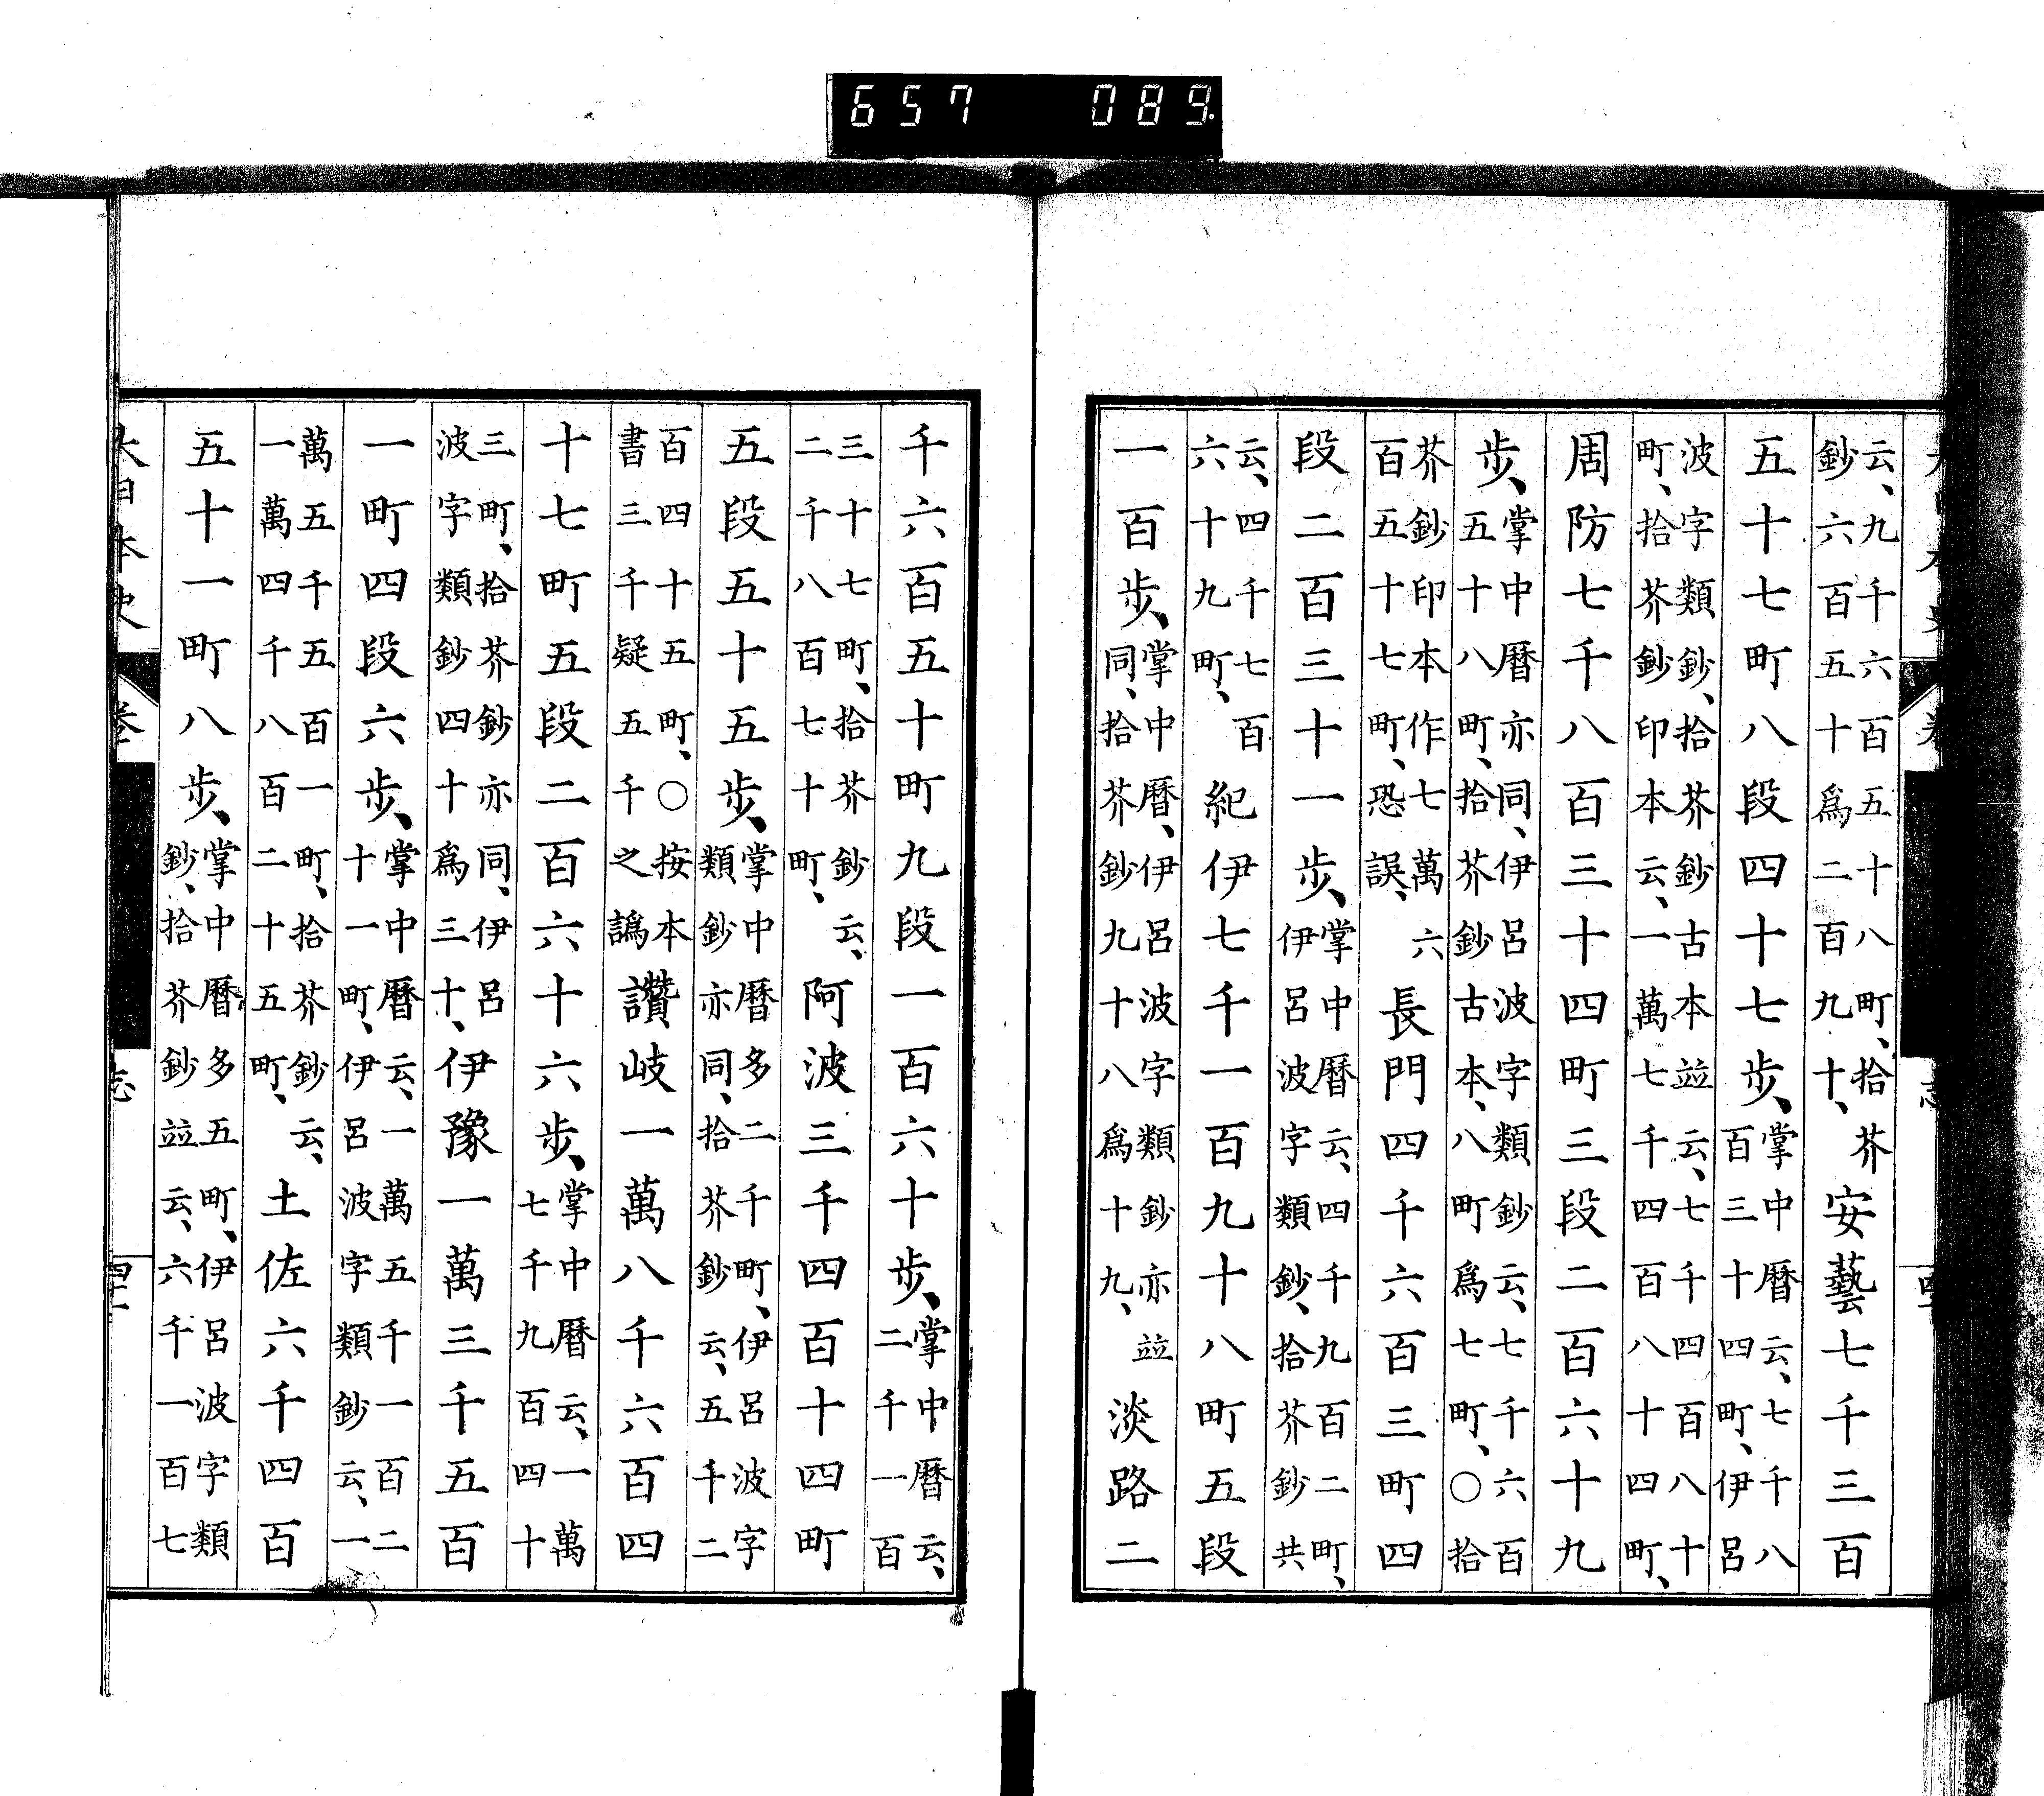 657 089
云、九千六百五十八町、拾芥鈔六百五十爲二百九十、安藝七千三百
五十七町八段四十七歩、掌中曆云、七千八百三十四町、伊呂
波字類鈔、拾芥鈔古本竝云、七千四百八十町、拾芥鈔印本云、一萬七千四百八十四町、
周防七千八百三十四町三段二百六十九
歩、掌中曆亦同、伊呂波字類鈔云、七千六百五十八町、拾芥鈔古本、八町爲七町、〇拾
芥鈔印本作七萬六百五十七町、恐誤、長門四千六百三町四
段二百三十一歩、掌中曆云、四千九百二町、伊呂波字類鈔、拾芥鈔共
云、四千七百六十九町、紀伊七千一百九十八町五段
一百歩、掌中曆、伊呂波字類鈔亦竝同、拾芥鈔九十八爲十九、淡路二
千六百五十町九段一百六十歩、掌中曆云、二千一百
三十七町、拾芥鈔云、二千八百七十町、阿波三千四百十四町
五段五十五歩、掌中曆多二千町、伊呂波字類鈔亦同、拾芥鈔云、五千二
百四十五町、〇按本書三千疑五千之譌讚岐一萬八千六百四
十七町五段二百六十六歩、掌中曆云、一萬七千九百四十
三町、拾芥鈔亦同、伊呂波字類鈔四十爲三十、伊豫一萬三千五百
一町四段六歩、掌中曆云、一萬五千一百二十一町、伊呂波字類鈔云、一
萬五千五百一町、拾芥鈔云、一萬四千八百二十五町、土佐六千四百
五十一町八歩、掌中曆多五町、伊呂波字類鈔、拾芥鈔竝云、六千一百七
大日本史 卷 志